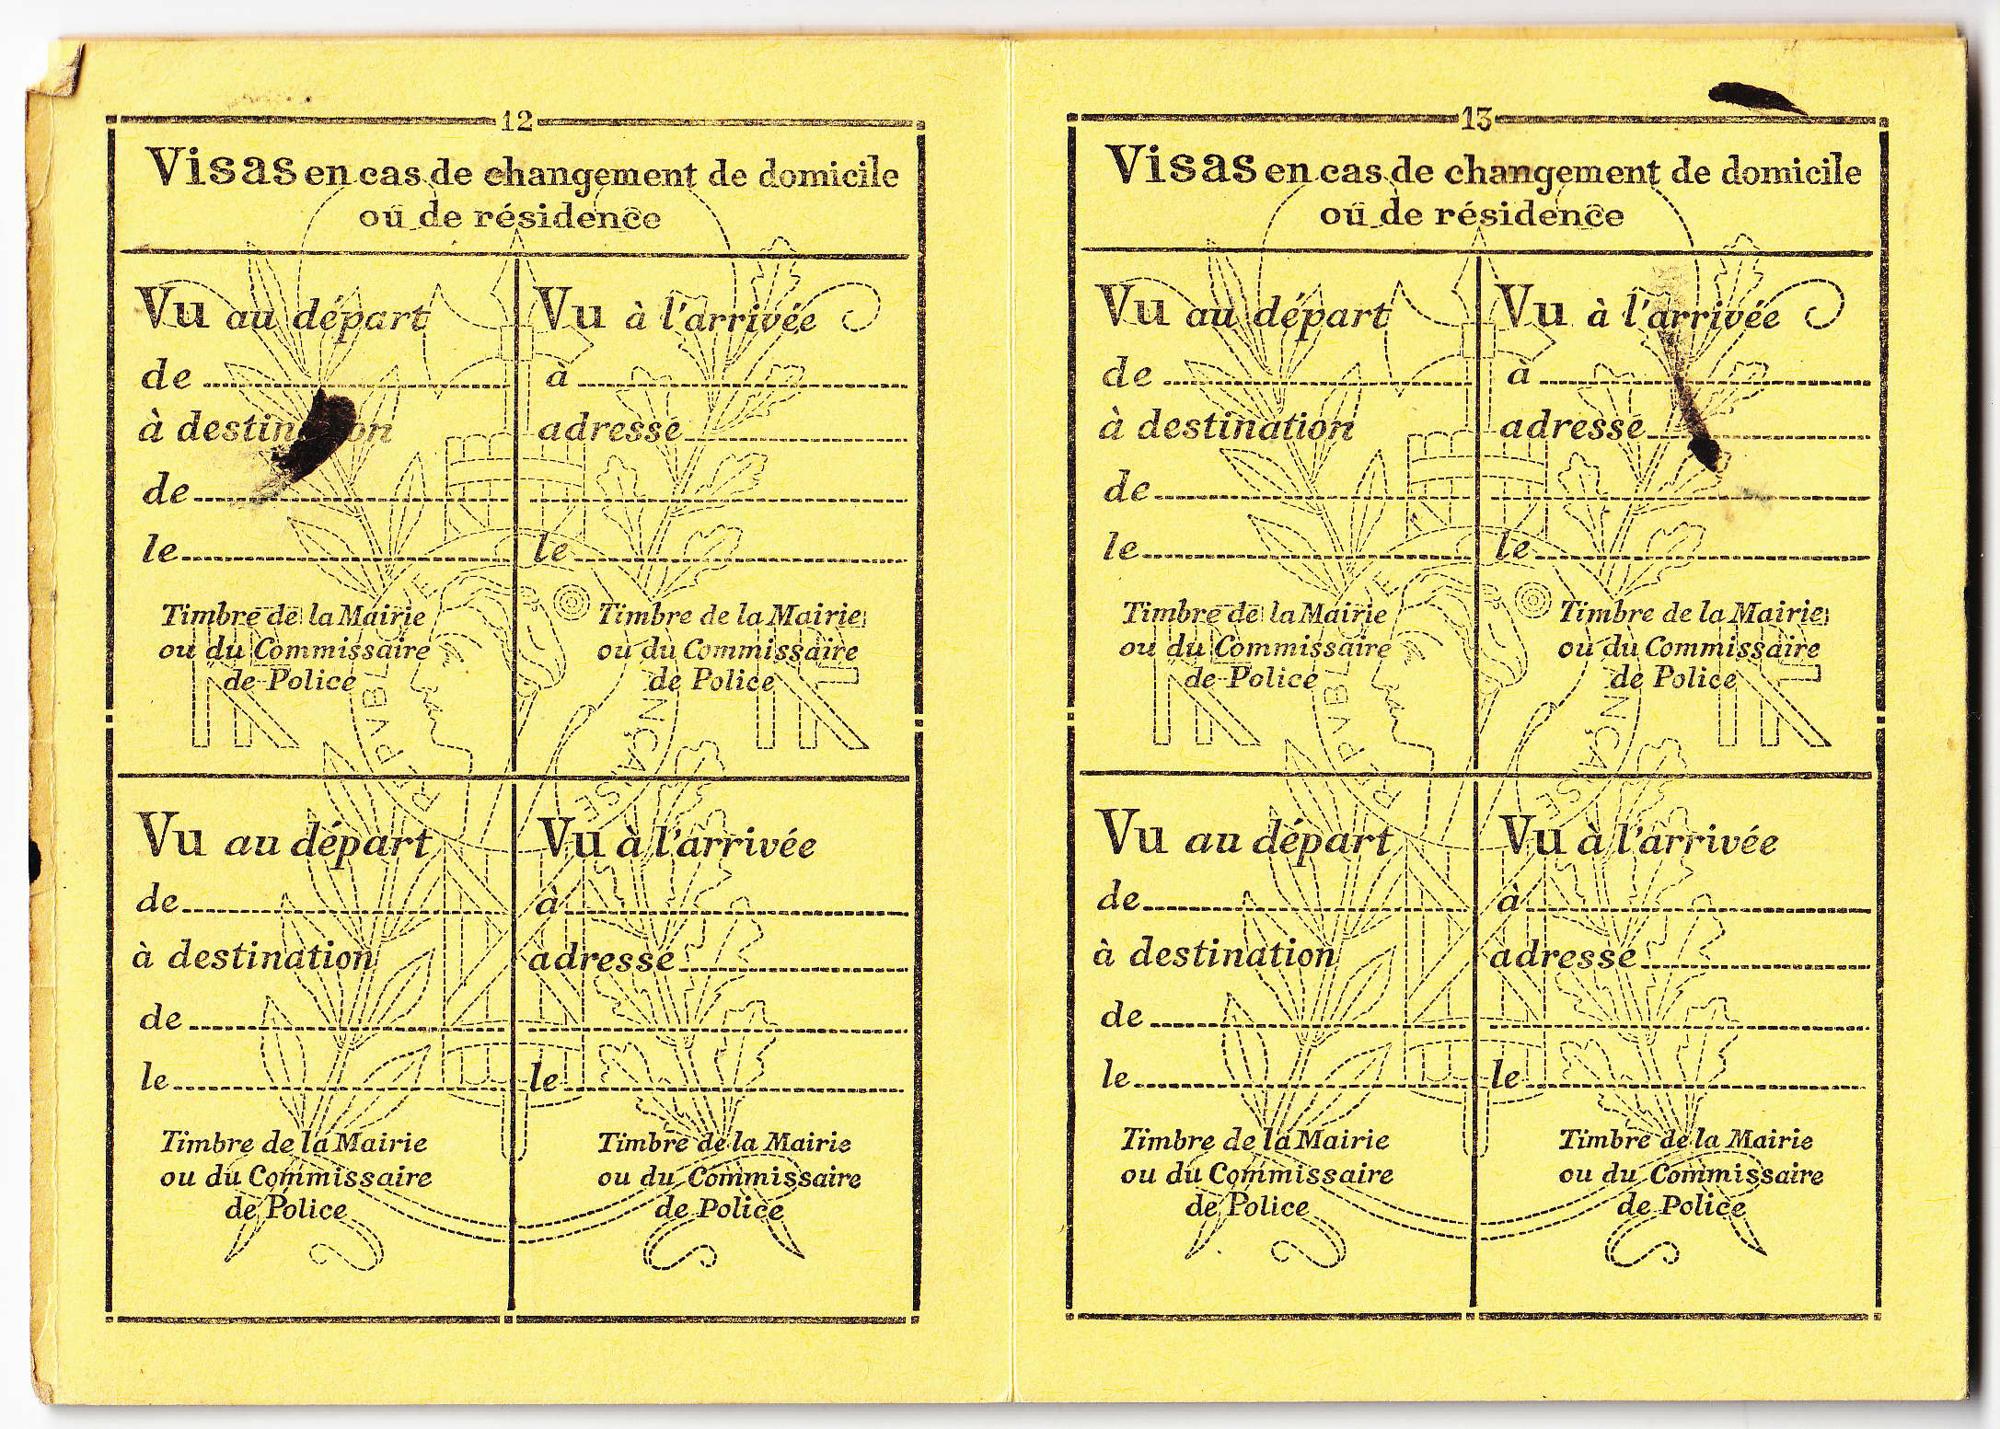 12
Visas en cas de changement de domicile
ou de résidence
Vu au départ
de
à destination
de
le
Timbre de la Mairie
ou du Commissaire
de Police
Vu à l'arrivée
à
adresse
le
Timbre de la Mairie
ou du Commissaire
de Police
Vu au départ
de
à destination
de
le
Timbre de la Mairie
ou du Commissaire
de Police
Vu à l'arrivée
à
adresse
le
Timbre de la Mairie
ou du Commissaire
de Police
RF
REPVBLIQVE FRANÇAISE
13
Visas en cas de changement de domicile
ou de résidence
Vu au départ
de
à destination
de
le
Timbre de la Mairie
ou du Commissaire
de Police
Vu à l'arrivée
à
adresse
le
Timbre de la Mairie
ou du Commissaire
de Police
Vu au départ
de
à destination
de
le
Timbre de la Mairie
ou du Commissaire
de Police
Vu à l'arrivée
à
adresse
le
Timbre de la Mairie
ou du Commissaire
de Police